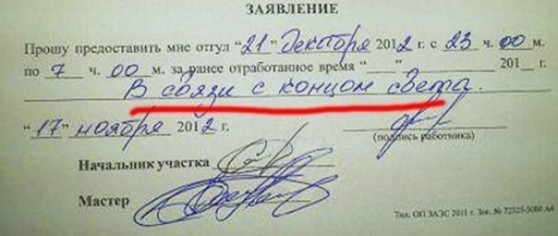 ЗАЯВЛЕНИЕ
Прошу предоставить мне отгул "21" декабря 2012 г с 23 ч. 00 м.
по 7 ч. 00 м. за ранее отработанное время "___" ________ 201__ г.
В связи с концом света.
"17" ноября 2012 г.
(подпись работника)
Начальник участка
Мастер
Тип. ОП ЗАЭС 2011 г. Зек. № 72325-5000 А4